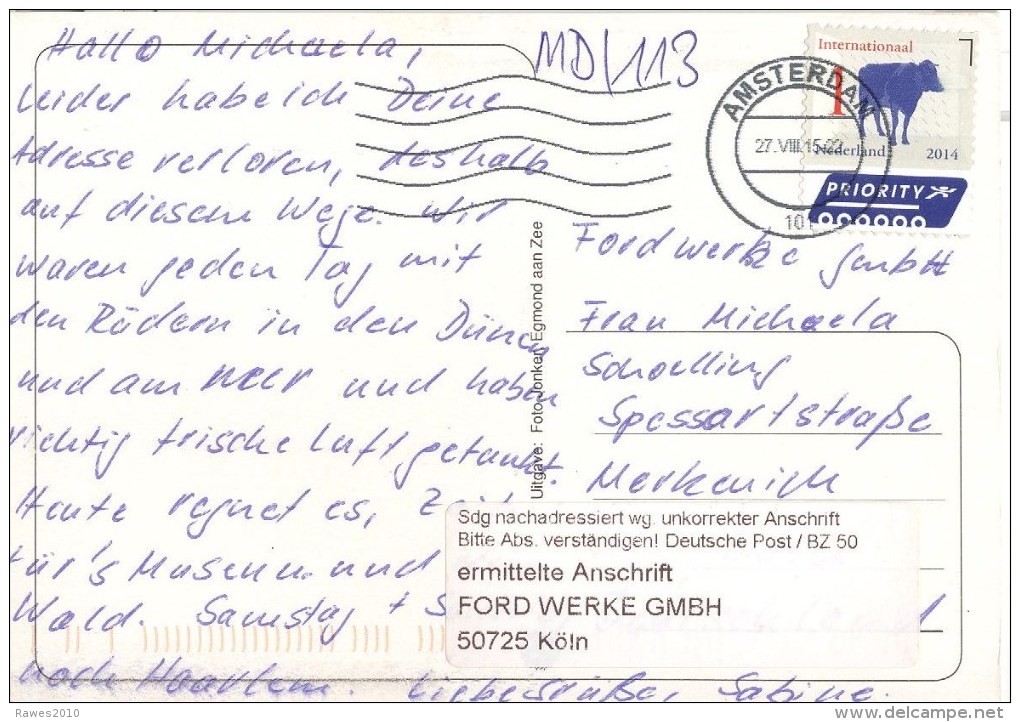 Hallo Michaela,
leider habe ich Deine
Adresse verloren, deshalb
auf diesem Wege. Wir
waren jeden Tag mit
den Rädern in den Dünen
und am Meer und haben
richtig frische Luft getankt.
Heute regnet es, Zeit
für's Museum und
Wald. Samstag +
nach Haarlem. Liebe Grüße, Sabine.
MD/113
AMSTERDAM
27.VIII.15-22
101
Internationaal
1
Nederland 2014
PRIORITY
Uitgave: Foto Jonker, Egmond aan Zee
Fordwerke GmbH
Frau Michaela
Schoelling
Spessartstraße
Merkenich
Sdg nachadressiert wg. unkorrekter Anschrift
Bitte Abs. verständigen! Deutsche Post / BZ 50
ermittelte Anschrift
FORD WERKE GMBH
50725 Köln
Rawes2010
delcampe.net